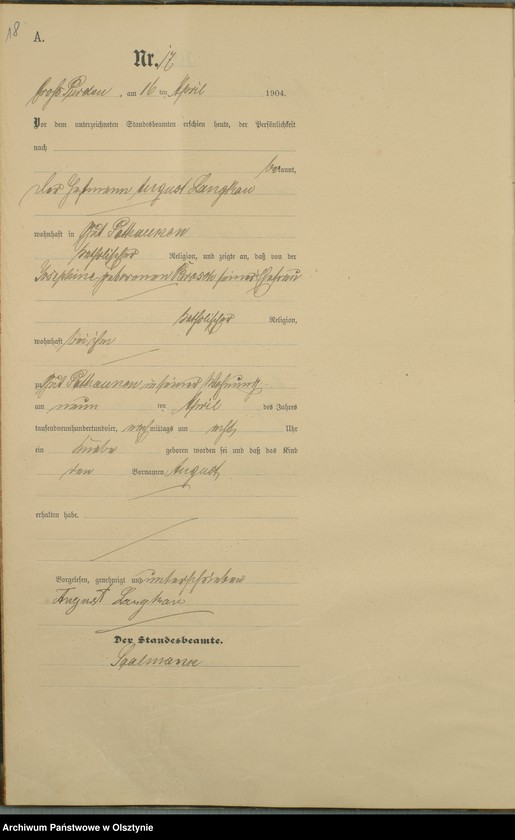 18
A.
Nr. 17
Groß Purden, am 16 ten April 1904.
Vor dem unterzeichneten Standesbeamten erschien heute, der Persönlichkeit
nach
bekannt,
der Hofmann August Langkau
wohnhaft in Gut Patlaunen
katholischer Religion, und zeigte an, daß von der
Josephine geborenen seiner Ehefrau
katholischer Religion,
wohnhaft bei ihm
zu Gut in seiner Wohnung
am neun ten April des Jahres
tausendneunhundertundvier, nachmittags um acht Uhr
ein Knabe geboren worden sei und daß das Kind
den Vornamen August
erhalten habe.
Vorgelesen, genehmigt und unterschrieben
August Langkau
Der Standesbeamte.
Archiwum Państwowe w Olsztynie